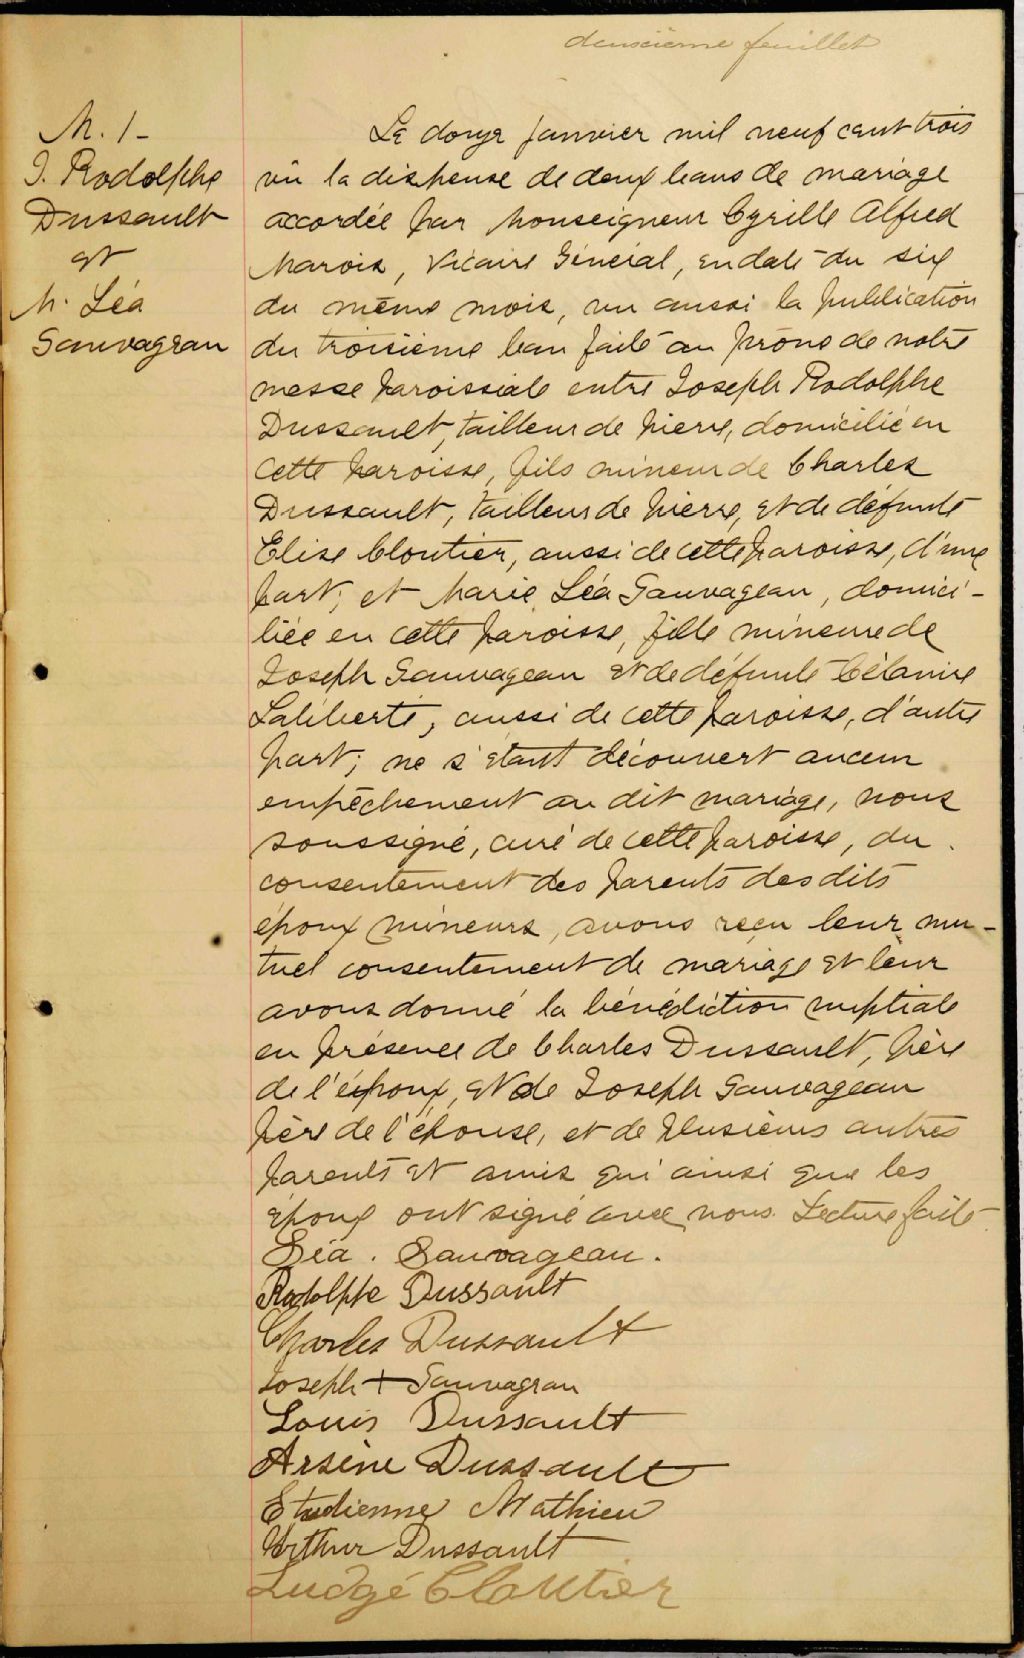 deuxième feuillet
M. 1-
J. Rodolphe
Dussault
et
M. Léa
Sauvageau
Le douze janvier mil neuf cent trois
vû la dispense de deux bans de mariage
accordée par Monseigneur Cyrille Alfred
Marois, Vicaire Général, en date du six
du même mois, vu aussi la publication
du troisième ban faite au prône de notre
messe paroissiale entre Joseph Rodolphe
Dussault, tailleur de pierre, domicilié en
cette paroisse, fils mineur de Charles
Dussault, tailleur de pierre, et de défunte
Elise Cloutier, aussi de cette paroisse, d'une
part; et Marie Léa Sauvageau, domici-
liée en cette paroisse, fille mineure de
Joseph Sauvageau et de défunte Célanire
Laliberté, aussi de cette paroisse, d'autre
part; ne s'étant découvert aucun
empêchement au dit mariage, nous
soussigné, curé de cette paroisse, du
consentement des parents des dits
époux mineurs, avons reçu leur mu-
tuel consentement de mariage et leur
avons donné la bénédiction nuptiale
en présence de Charles Dussault, père
de l'époux, et de Joseph Sauvageau
père de l'épouse, et de plusieurs autres
parents et amis qui ainsi que les
époux ont signé avec nous. Lecture faite
Léa. Sauvageau.
Rodolphe Dussault
Charles Dussault
Joseph + Sauvageau
Louis Dussault
Arsène Dussault
Mathieu
Arthur Dussault
Cloutier